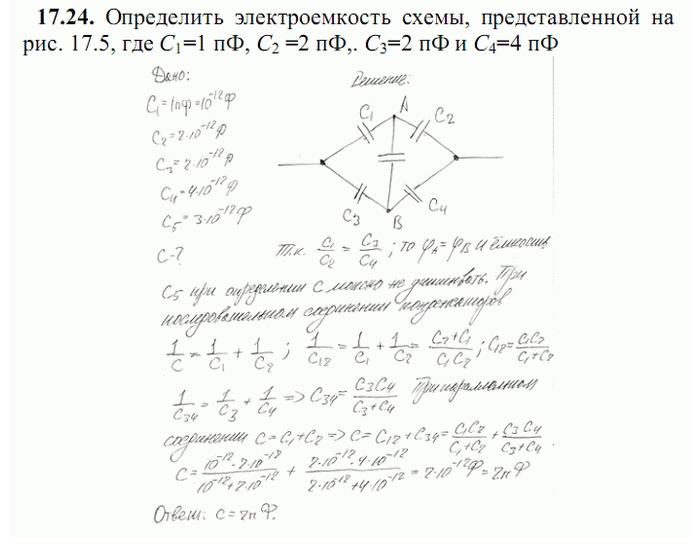 17.24. Определить электроемкость схемы, представленной на
рис. 17.5, где C₁=1 пФ, C₂ =2 пФ,. C₃=2 пФ и C₄=4 пФ
Дано:
C₁=1пФ=10⁻¹²Ф
C₂=2·10⁻¹²Ф
C₃=2·10⁻¹²Ф
C₄=4·10⁻¹²Ф
C₅=3·10⁻¹²Ф
C-?
Решение:
C₁ A C₂
C₃ B C₄
Т.к. C₁/C₂ = C₃/C₄ ; то φA=φB и ёмкость
C₅ при определении C можно не учитывать. При
последовательном соединении конденсаторов
1/C = 1/C₁ + 1/C₂ ; 1/C₁₂ = 1/C₁ + 1/C₂ = (C₂+C₁)/(C₁C₂) ; C₁₂ = C₁C₂/(C₁+C₂)
1/C₃₄ = 1/C₃ + 1/C₄ => C₃₄ = C₃C₄/(C₃+C₄) При параллельном
соединении C=C₁+C₂ => C=C₁₂+C₃₄ = C₁C₂/(C₁+C₂) + C₃C₄/(C₃+C₄)
C = (10⁻¹²·2·10⁻¹²)/(10⁻¹²+2·10⁻¹²) + (2·10⁻¹²·4·10⁻¹²)/(2·10⁻¹²+4·10⁻¹²) = 2·10⁻¹²Ф = 2пФ
Ответ: C=2пФ.